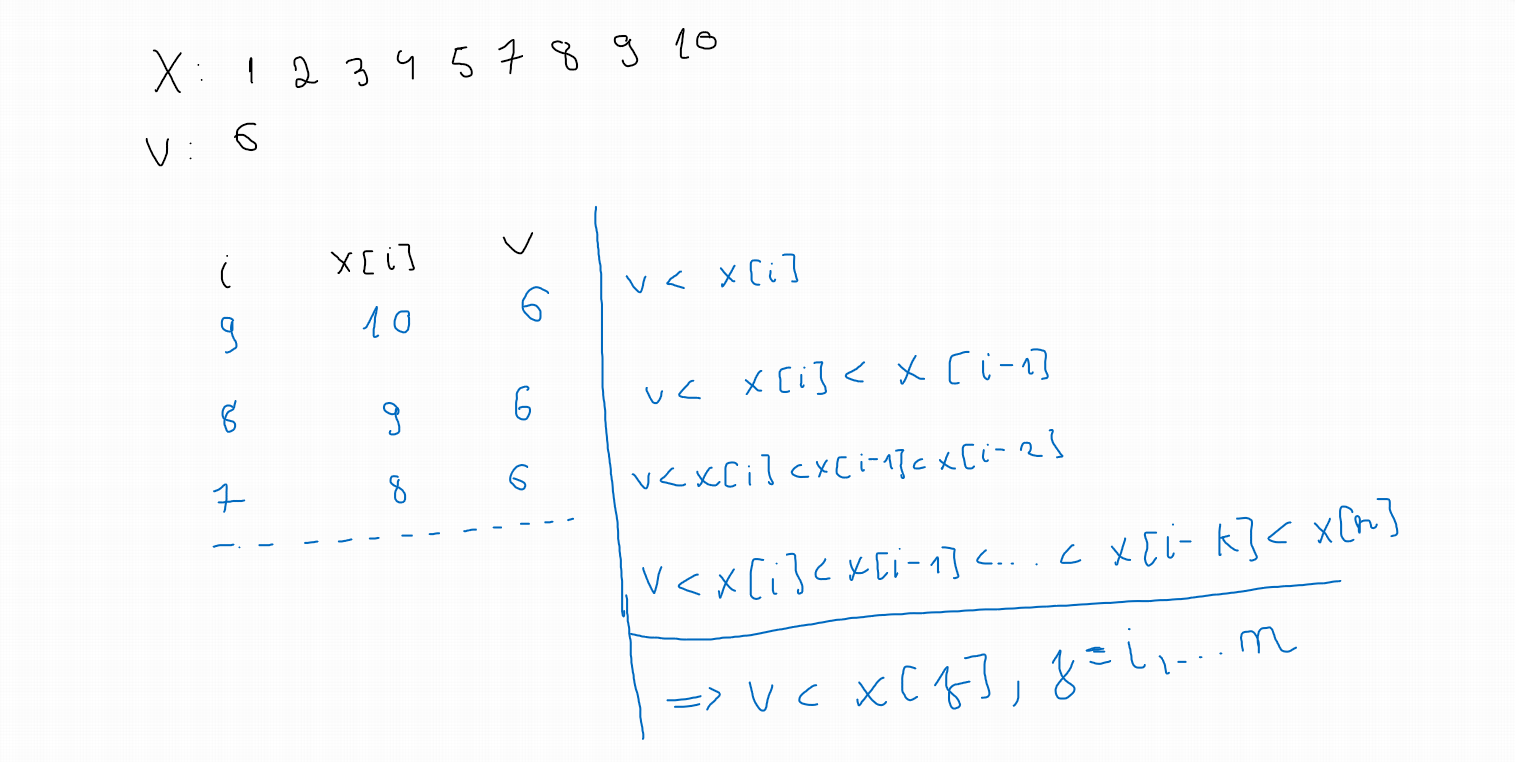 X: 1 2 3 4 5 7 8 9 10
V: 6
i x[i] v
9 10 6
v < x[i]
8 9 6
v < x[i] < x[i-1]
7 8 6
v < x[i] < x[i-1] < x[i-2]
v < x[i] < x[i-1] < ... < x[i-k] < x[n]
=> v < x[j], j = i, ... n